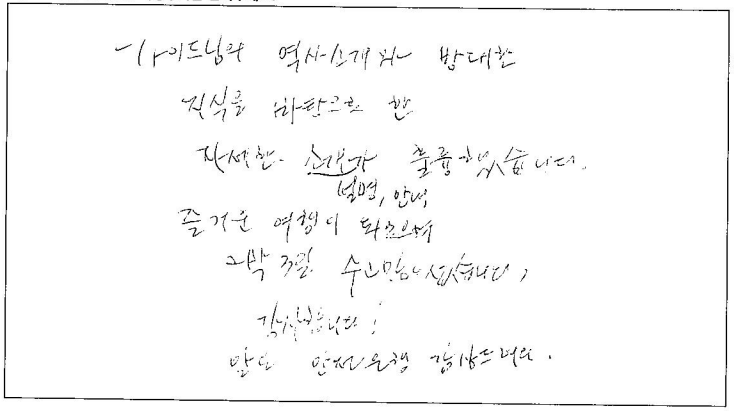 가이드님의 역사소개와 방대한
지식을 바탕으로 한
자세한 소개가 훌륭했습니다.
설명, 안내
즐거운 여행이 되었으며
2박 3일 수고많으셨습니다,
감사합니다!
안전운행 감사드려요.